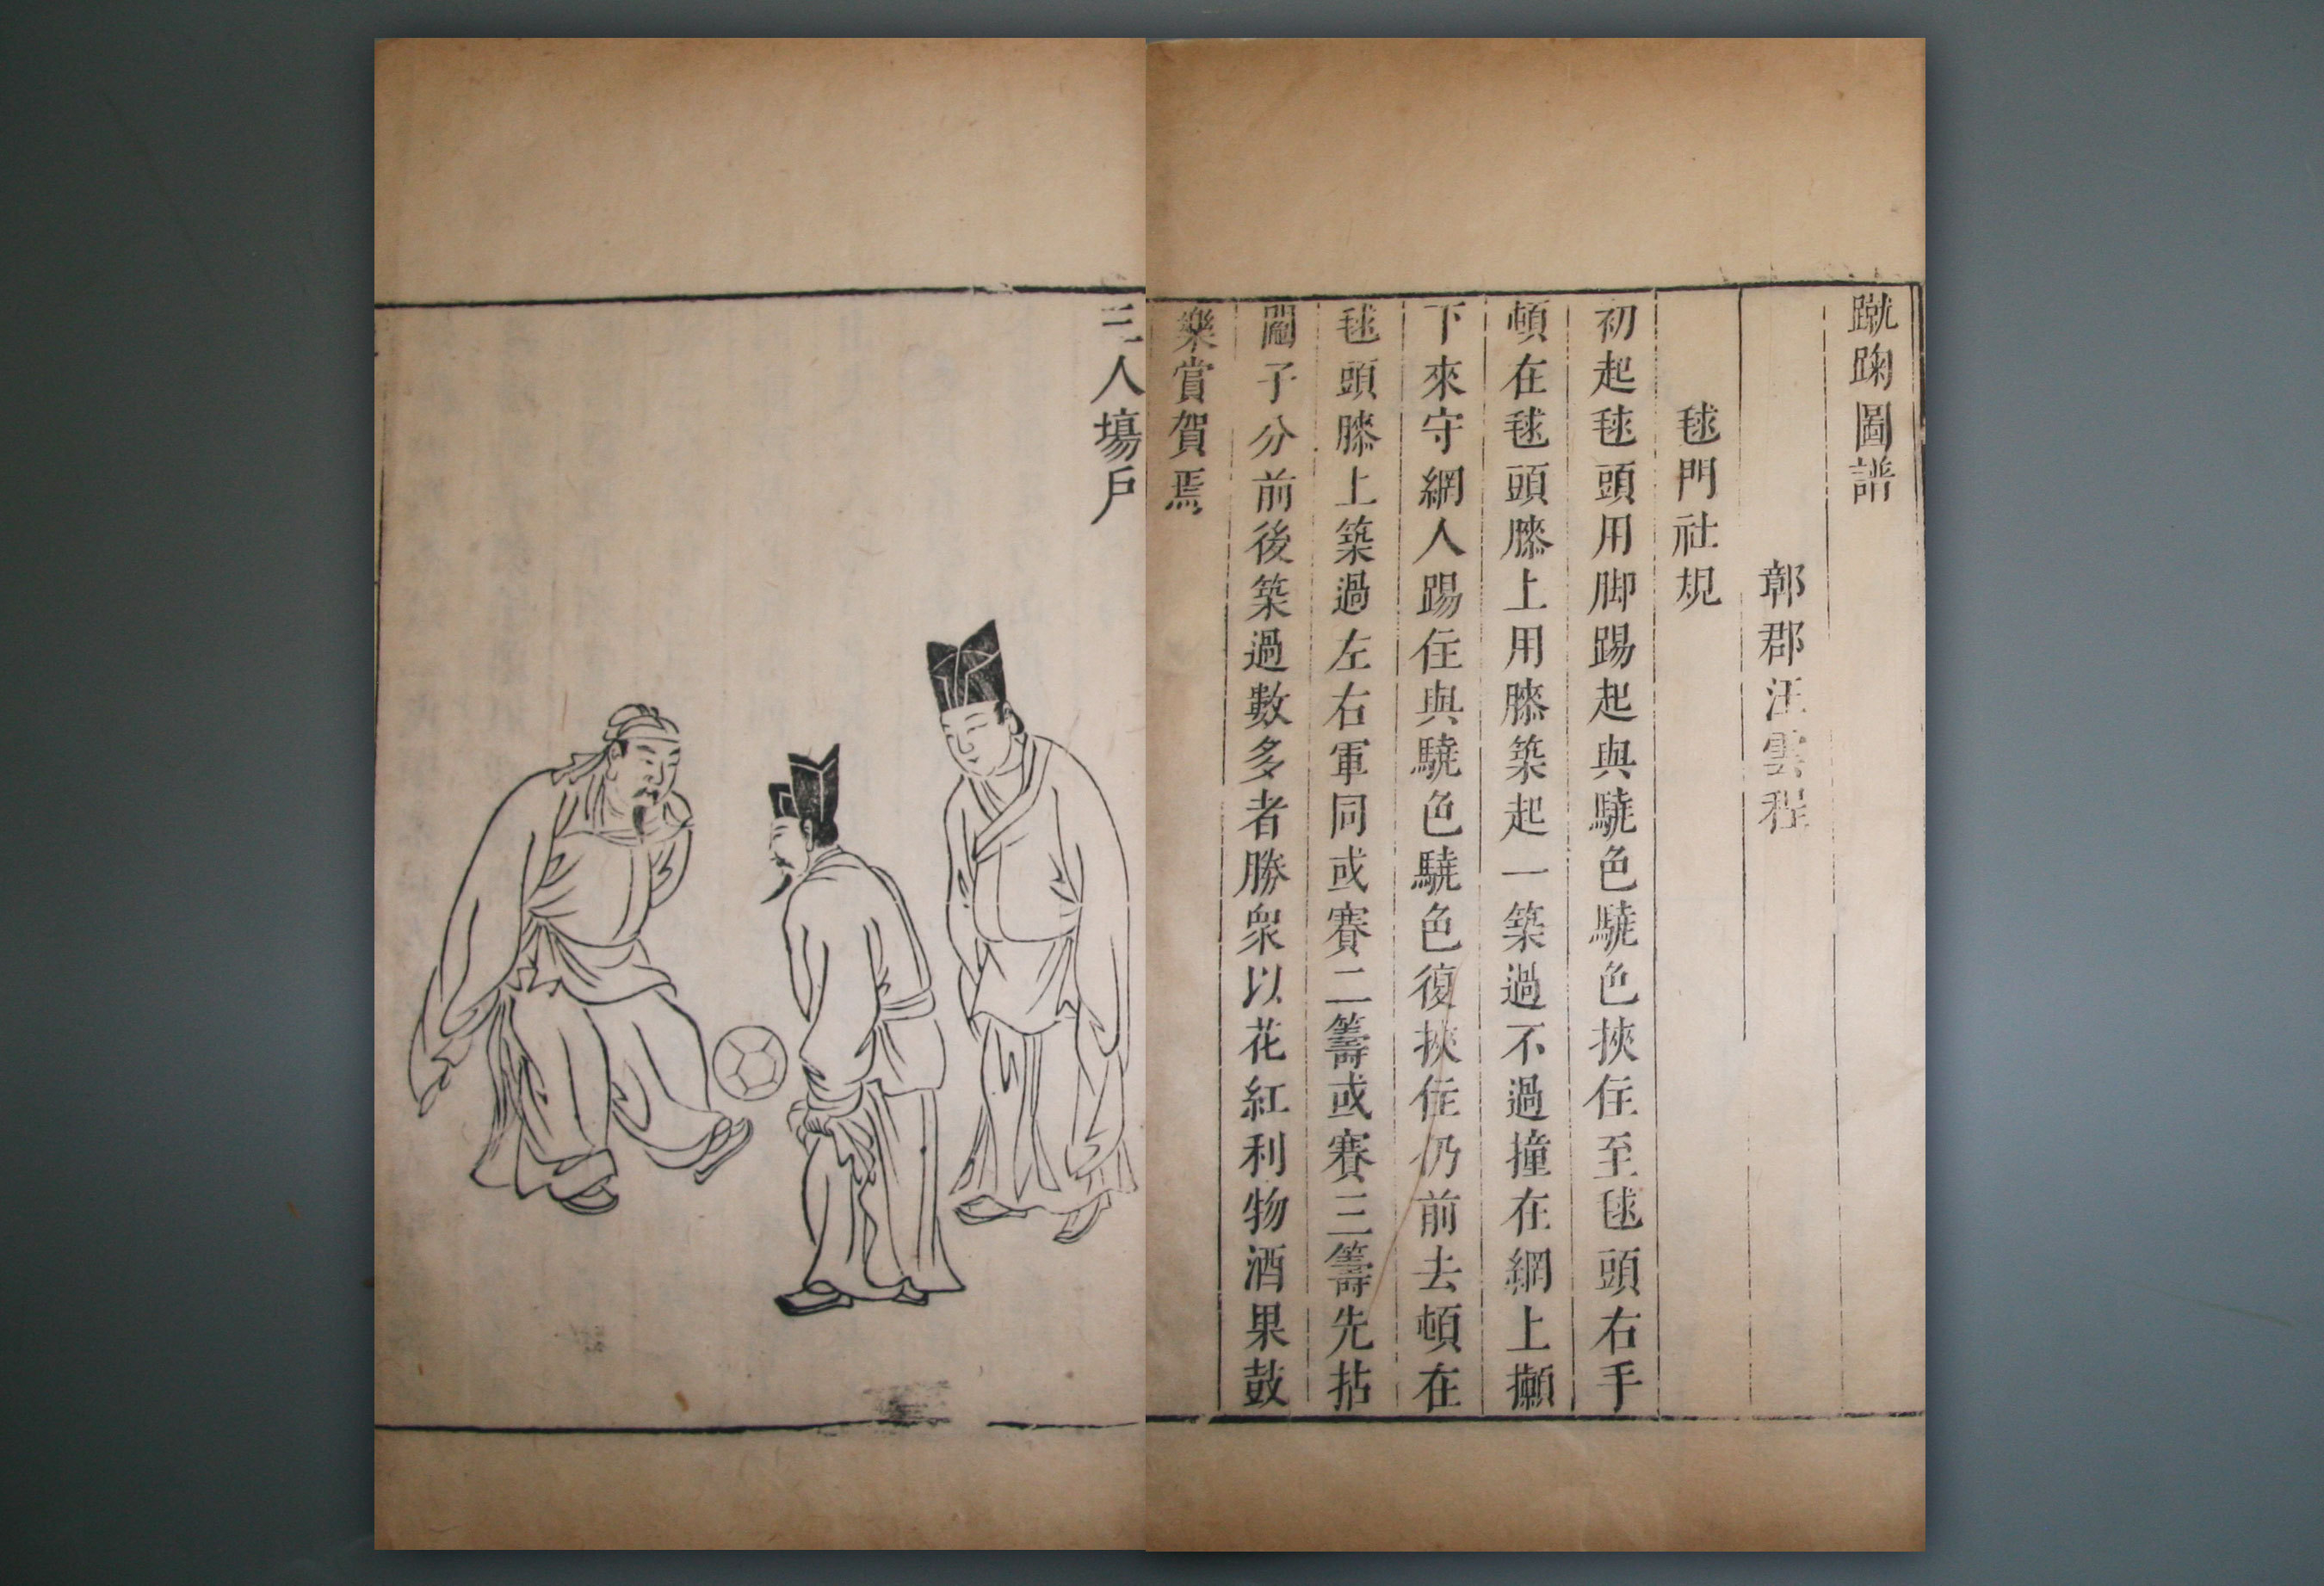 蹴踘圖譜
鄣郡汪雲程
毬門社規
初起毬頭用脚踢起與驍色驍色挾住至毬頭右手
頓在毬頭膝上用膝築起一築過不過撞在網上攧
下來守網人踢住與驍色驍色復挾住仍前去頓在
毬頭膝上築過左右軍同或賽二籌或賽三籌先拈
鬮子分前後築過數多者勝衆以花紅利物酒果鼓
樂賞賀焉
三人場戶